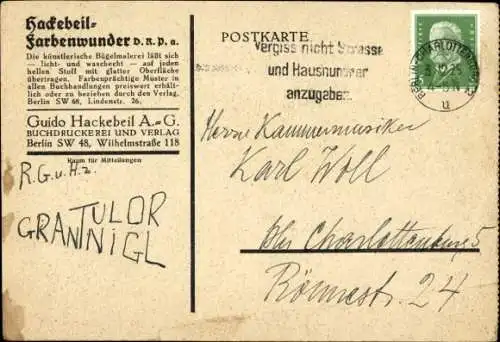 Hackebeil-
Farbenwunder D.R.P.a.
Die künstlerische Bügelmalerei läßt sich
— licht- und waschecht — auf jeden
hellen Stoff mit glatter Oberfläche
übertragen. Farbenprächtige Muster in
allen Buchhandlungen preiswert erhält-
lich oder zu beziehen durch den Verlag,
Berlin SW 68, Lindenstr. 26.
Guido Hackebeil A.=G.
BUCHDRUCKEREI UND VERLAG
Berlin SW 48, Wilhelmstraße 118
Raum für Mitteilungen
R.G.u.Hz.
TULOR
GRANTNIGL
POSTKARTE
Vergiss nicht Strasse
und Hausnummer
anzugeben
BERLIN-CHARLOTTENBURG
u
5
Herrn Kammermusiker
Karl Woll
Charlottenburg 5
Rönnestr. 24